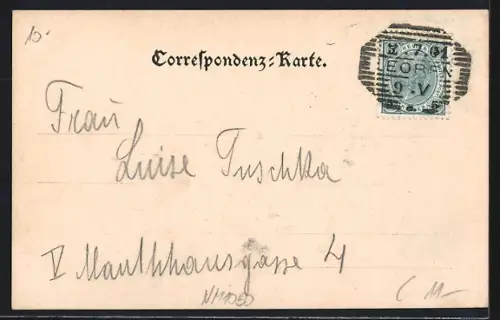 10.-
Correspondenz-Karte.
5 5
9 V
Frau
Luise Puschka
V Manthhausgasse 4
N11050
( 11-